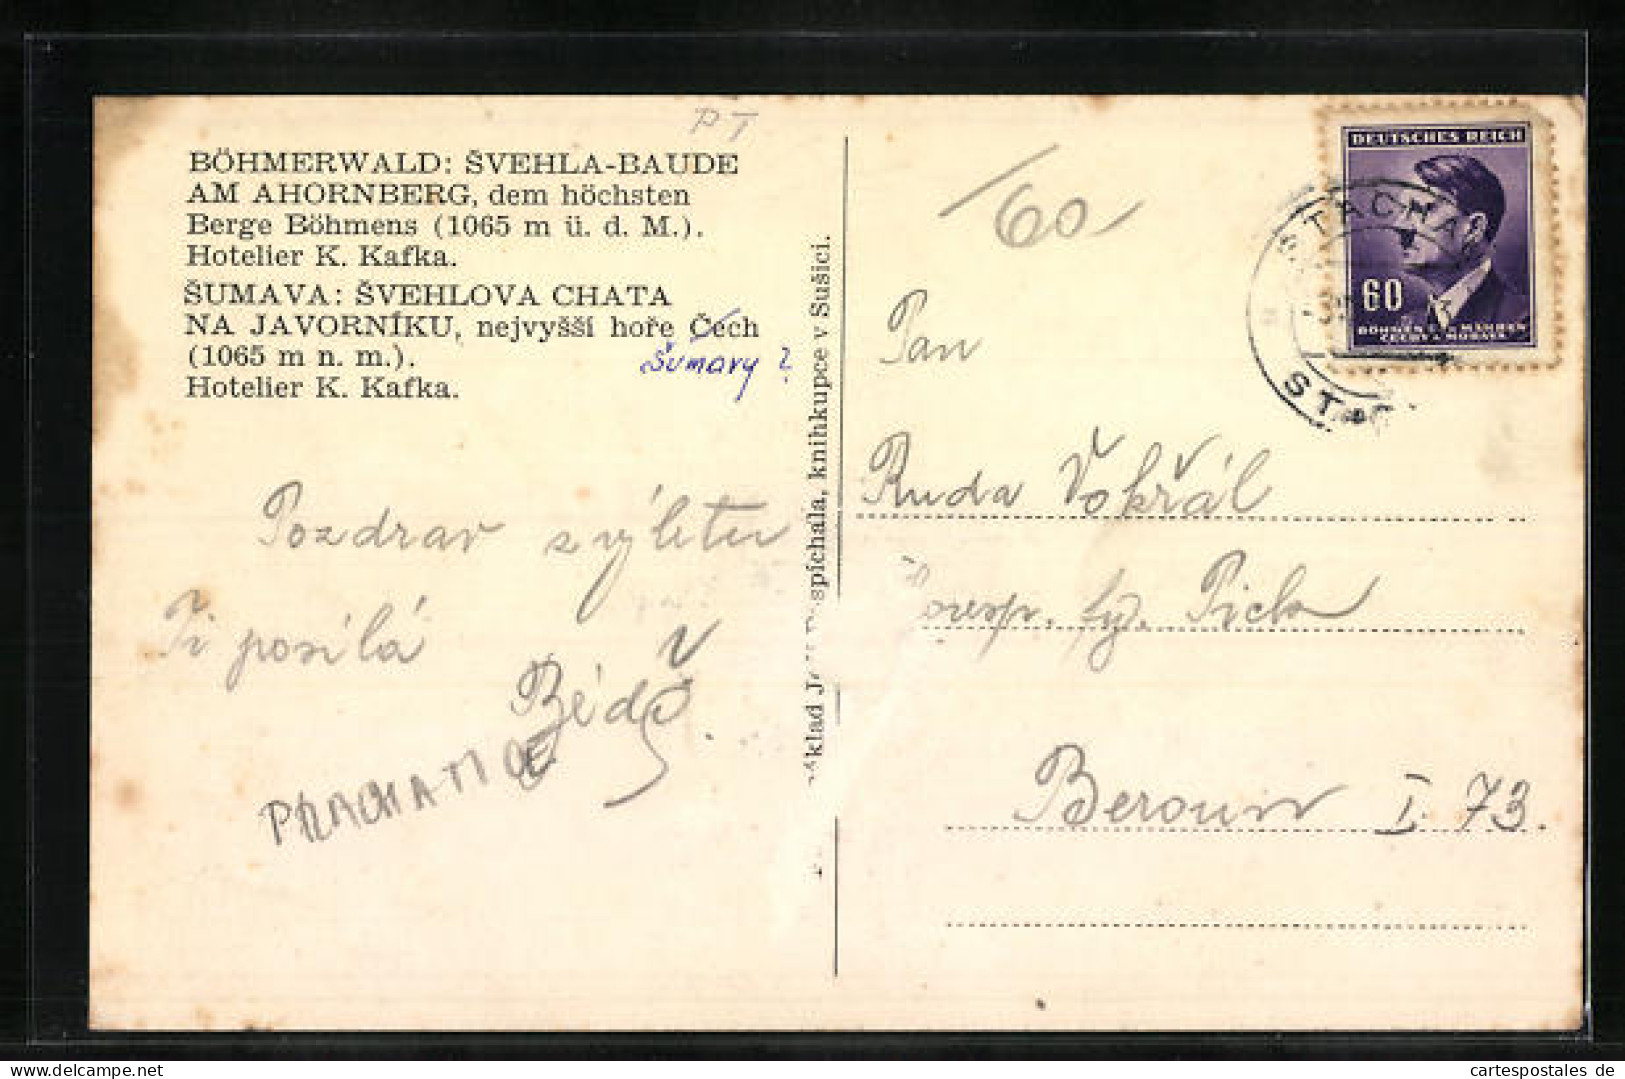 PT
BÖHMERWALD: ŠVEHLA-BAUDE
AM AHORNBERG, dem höchsten
Berge Böhmens (1065 m ü. d. M.).
Hotelier K. Kafka.
ŠUMAVA: ŠVEHLOVA CHATA
NA JAVORNÍKU, nejvyšší hoře Čech
(1065 m n. m.).
Šumavy ?
Hotelier K. Kafka.
Pozdrav z výletu
Ti posílá
Béďa
PRACHATICE
knihkupce v Sušici.
60
DEUTSCHES REICH
60
BÖHMEN U. MÄHREN
ČECHY A MORAVA
STACHA
ST
Pan
Ruda Vokřál
Pick
Beroun I. 73.
cartespostales de